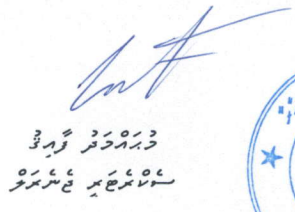 މުޙައްމަދު ފާއިޤު
ސެކްރެޓަރީ ޖެނެރަލް